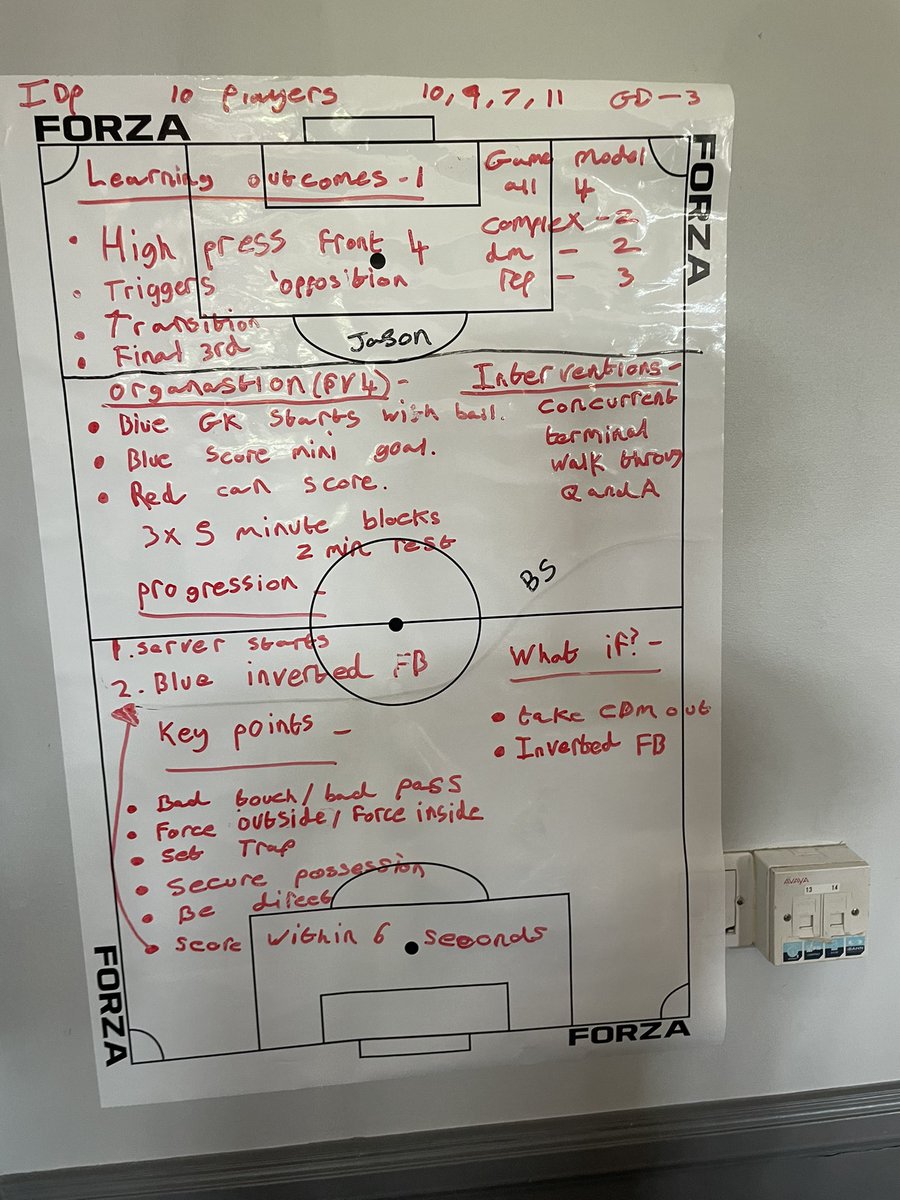 IDP 10 Players 10, 9, 7, 11 GD-3
FORZA
FORZA
Learning outcomes - 1
• High press front 4
• Triggers 'opposition
• Transition
• Final 3rd
Game model
all 4
complex - 2
dm - 2
rep - 3
Jason
organastion (PV4) -
• Blue GK starts with ball.
• Blue score mini goal.
• Red can score.
3x 5 minute blocks
2 min rest
Interventions -
concurrent
terminal
walk throug
Q and A
BS
progression -
1. server starts
2. Blue inverted FB
What if? -
• take CDM out
• Inverted FB
Key points -
• Bad touch/bad pass
• Force outside/Force inside
• Set Trap
• Secure possession
• Be direct
• Score within 6 seconds
FORZA
FORZA
AVAYA
13 14